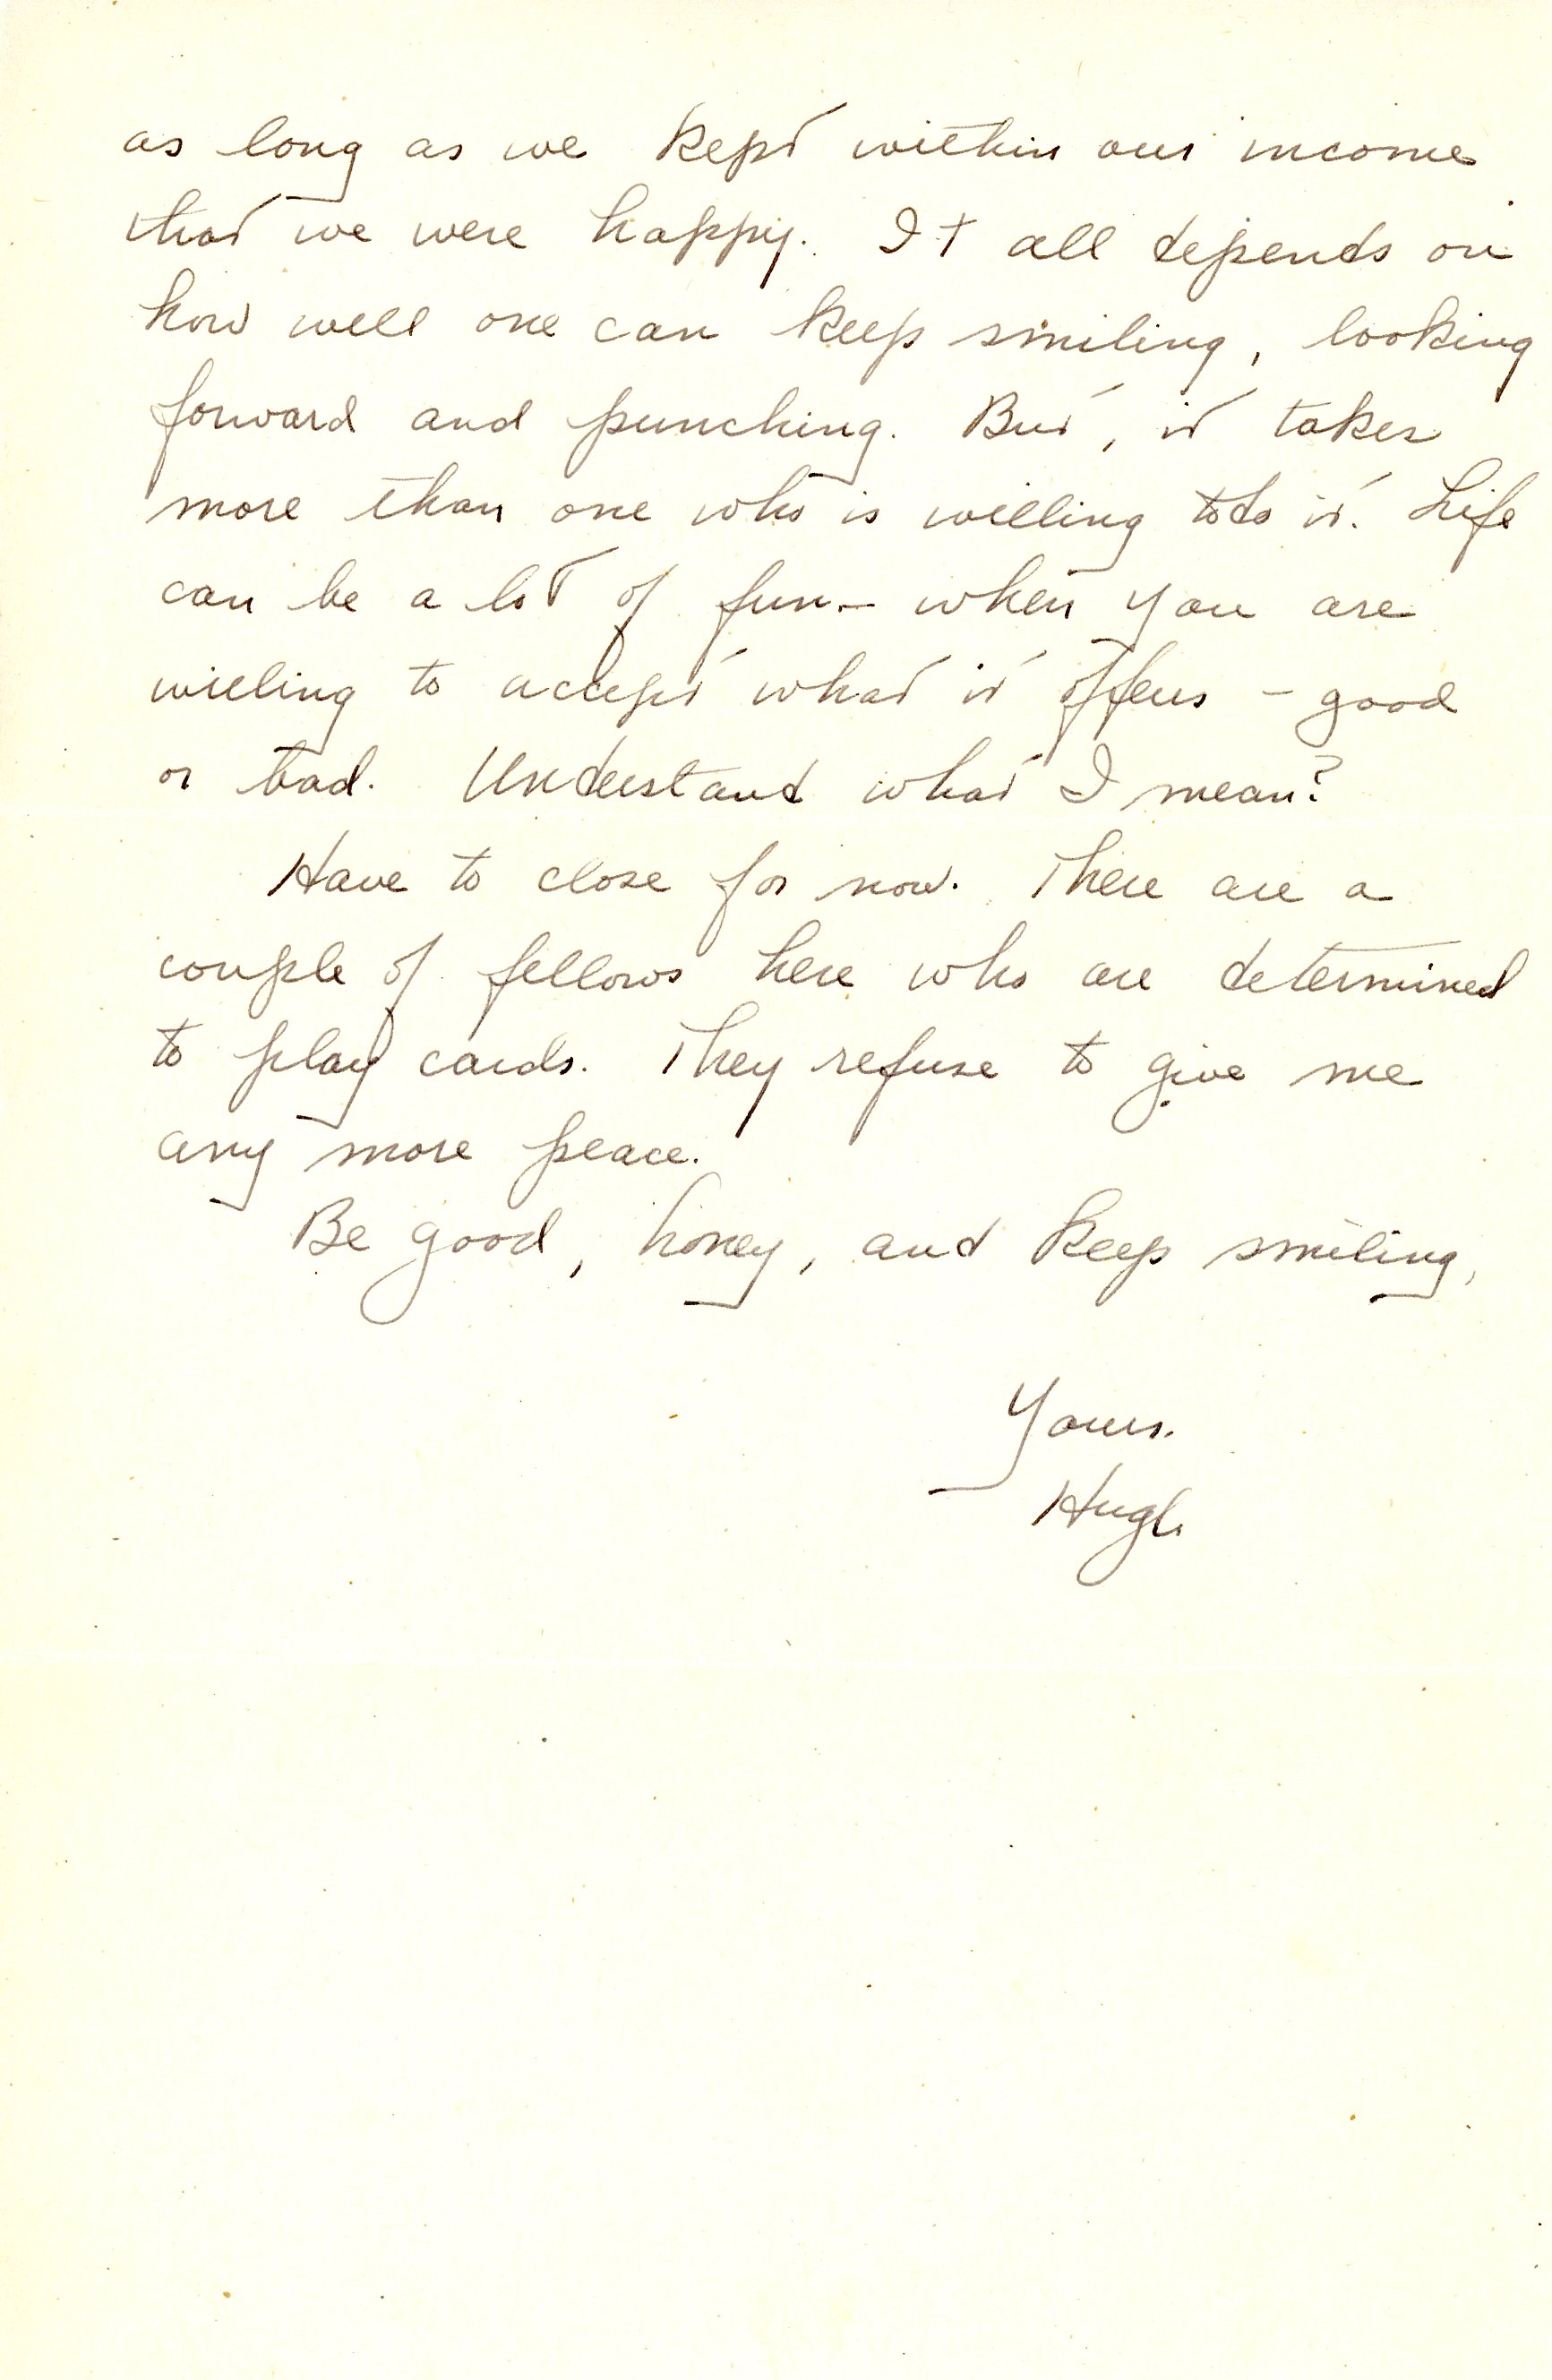 as long as we kept within our income
that we were happy. It all depends on
how well one can keep smiling, looking
forward and punching. But, it takes
more than one who is willing to do it. Life
can be a lot of fun - when you are
willing to accept what it offers - good
or bad. Understand what I mean?
Have to close for now. There are a
couple of fellows here who are determined
to play cards. They refuse to give me
any more peace.
Be good, honey, and keep smiling,
Yours.
Hugh